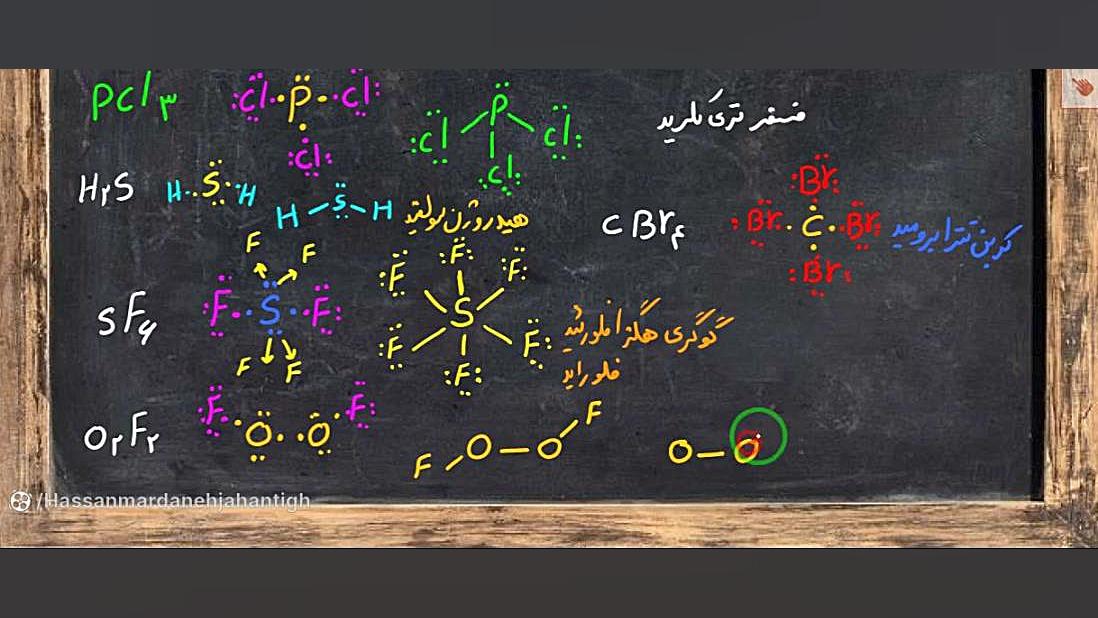 PCl۳ :Cl·P·Cl: Cl: P :Cl :Cl Cl: فسفر تری کلرید
H۲S H S H H S H هیدروژن سولفید CBr۴ :Br C Br: :Br: :Br: کربن تترا برومید
SF۶ F F :F S F: F F :F :F: F: S :F F: :F: گوگرد هگزا فلوئورید
فلوراید
O۲F۲ F O O F F O O F O O
/Hassanmardanehjahantigh